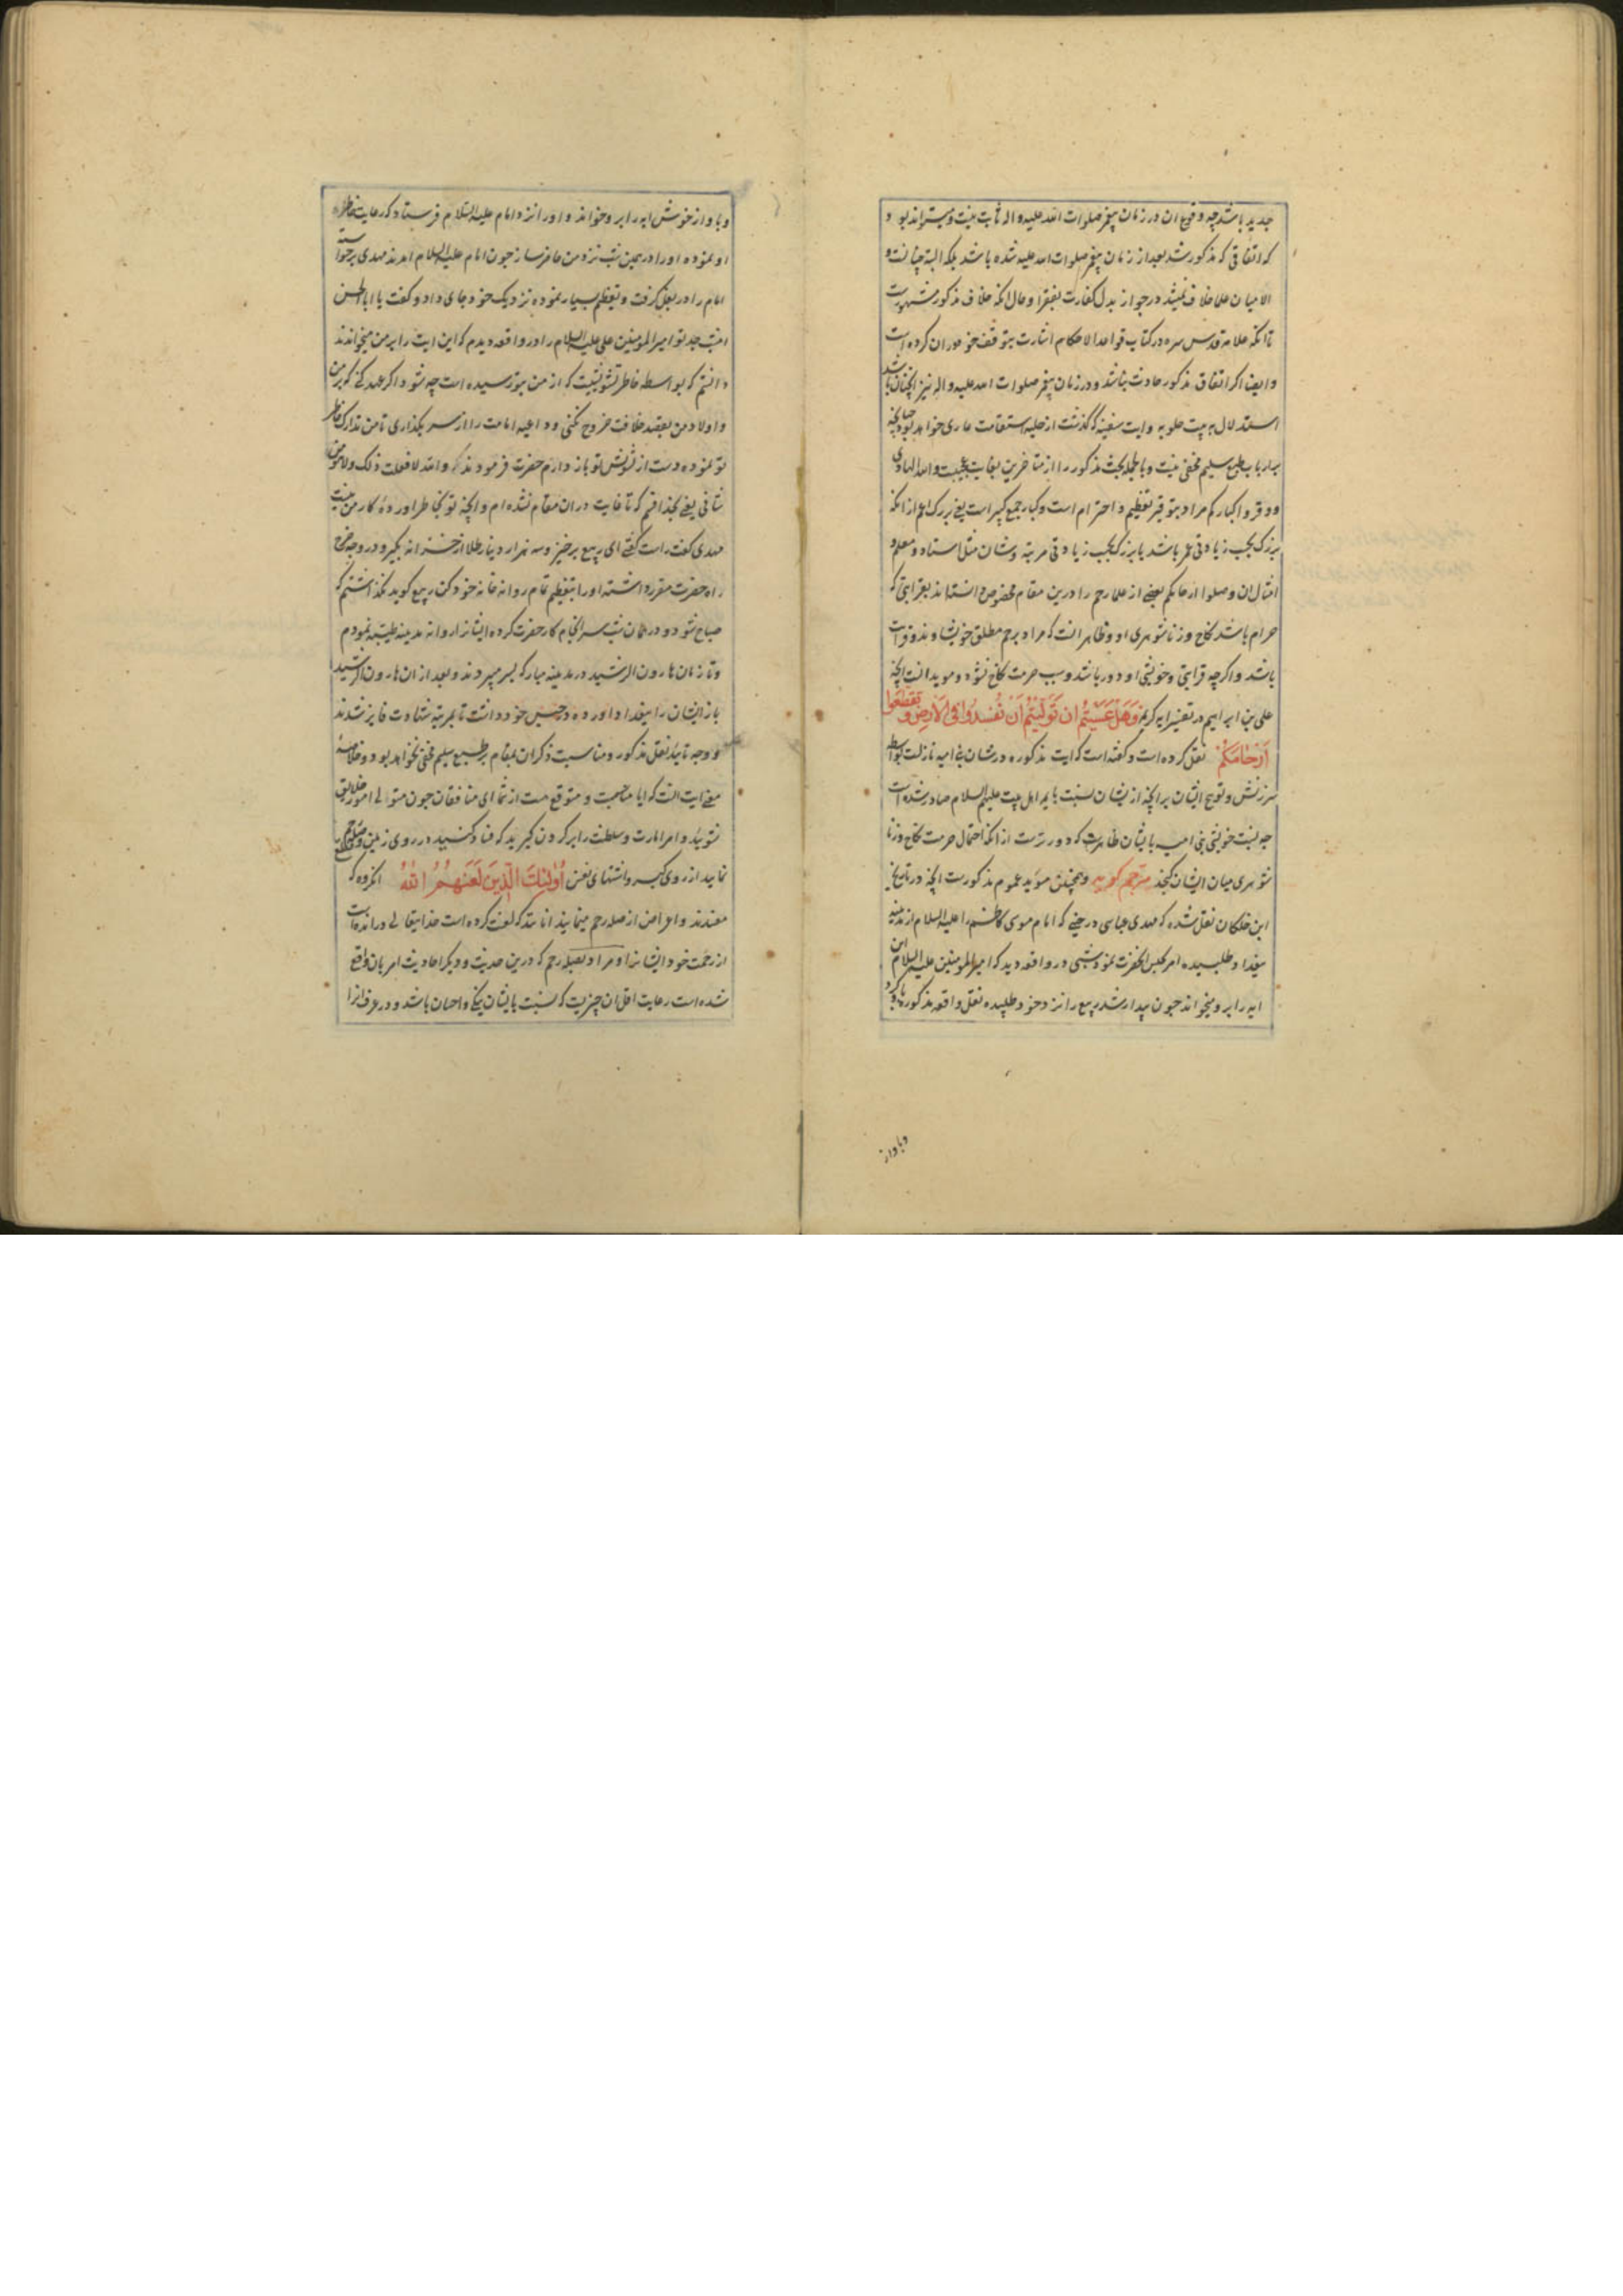 جدید باشد چه وقوع ان در زمان پیغمبر صلوات الله علیه و اله ثابت نیست و میتواند بود
که اتفاقی که مذکور شد بعد از زمان پیغمبر صلوات الله علیه شده باشد بلکه البته چنانست و
الا میان علما خلاف نمیشد در جواز بدل کفارت بفقرا و حال انکه خلاف مذکور مشهورست
تا انکه علامه قدس سره در کتاب قواعد الاحکام اشارت بتوقف خود دران کرده است
و ایضا اکر اتفاق مذکور حادث نباشد و در زمان پیغمبر صلوات الله علیه و اله نیز انچنان باشد
استدلال به بیت حلوبه وایت سفینه که کذشت از حلیه استقامت عاری خواهد بود چنانچه
بر ارباب طبع سلیم مخفی نیست و بالجمله بحث مذکور را از متاخرین بغایت عجیبست والله الهادی
و وقروا کبارکم مراد بتوقیر تعظیم و احترام است و کبار جمع کبیر است یعنی بزرک اعم از انکه
بزرک بحسب زیادتی عمر باشد یا بزرک بحسب زیادتی مرتبه و شان مثل استاد و معلم و
امثال ان وصلوا ارحامکم بعضی از علما رحم را درین مقام مخصوص داشته اند بقرابتی که
حرام باشد نکاح و زناشوهری او و ظاهر انست که مراد برحم مطلق خویشاوند و قرابت
باشد و اکرچه قرابتی و خویشی او دور باشد و سبب حرمت نکاح نشود و موید انست انچه
علی بن ابراهیم در تفسیر ایه کریمه وَهَلْ عَسَیْتُمْ اِنْ تَوَلَّیْتُمْ اَنْ تُفْسِدُوا فِی الْاَرْضِ وَ تُقَطِّعُوا
اَرْحَامَکُمْ نقل کرده است و کفته است که ایت مذکوره در شان بنی امیه نازلست بواسطه
سرزنش و توبیخ ایشان بر انچه از ایشان نسبت بایمه اهل بیت علیهم السلام صادر شده است
چه نسبت خویشی بنی امیه بایشان ظاهرست که دورترست از انکه احتمال حرمت نکاح و زنا
شوهری میان ایشان کنجد مترجم کوید و همچنین موید عموم مذکورست انچه در تاریخ
ابن خلکان نقل شده که مهدی عباسی در حینی که امام موسی کاظم را علیه السلام از مدینه
ببغداد طلبیده امر بحبس انحضرت نمود شبی در واقعه دید که امیر المومنین علیه السلام این
ایه را برو میخواند چون بیدار شد ربیع را نزد خود طلبیده نقل واقعه مذکوره باو کرد
وباواز
وباواز خوش ایه را برو خواند و او را نزد امام علیه السلام فرستاد که رعایت خاطر
او نموده او را در همین شب نزد من حاضر ساز چون امام علیه السلام امدند مهدی برخواسته
امام را در بغل کرفت و تعظیم بسیار نموده نزدیک خود جای داد و کفت یا ابا الحسن
امشب جد تو امیر المومنین علی علیه السلام را در واقعه دیدم که این ایت را بر من میخواندند
دانستم که بواسطه خاطر تشویشیست که از من بتو رسیده است چه شود اکر عهد کنی که بر من
و اولاد من بقصد خلافت خروج نکنی و داعیه امامت را از سر بکذاری تا من تدارک خاطر
تو نموده دست از تشویش تو باز دارم حضرت فرمودند که والله لا فعلت ذلک ولا هو من
شانی یعنی بخدا قسم که تا غایت در ان مقام نشده ام و انچه تو بخاطر اورده کار من نیست
مهدی کفت راست کفتی ای ربیع برخیز و سه هزار دینار طلا از خزانه بکیر و در وجه خرج
راه حضرت مقرر داشته او را بتعظیم تمام روانه خانه خود کن ربیع کوید نکذاشتم که
صباح شود و در همان شب سرانجام کار حضرت کرده ایشانرا روانه مدینه طیبه نمودم
و تا زمان هارون الرشید در مدینه مبارکه بسر میبردند و بعد از ان هارون الرشید
باز ایشان را ببغداد اورده در حبس خود داشت تا بمرتبه شهادت فایز شدند
و وجه تایید نقل مذکور و مناسبت ذکر ان بمقام بر طبع سلیم مخفی نخواهد بود و خلاصه
معنی ایت انست که ایا مناسبت و متوقع هست از شما ای منافقان چون متوالی امور خلایق
شوید و امر امارت و سلطنت را بر کردن کیرید که فساد کنید در روی زمین و قطع صله رحم
نمایید از روی کینه و اشتهای نفس اُولٰئِکَ الَّذِینَ لَعَنَهُمُ اللّٰهُ انکروه که
مفسدند و اعراض از صله رحم مینمایند انانند که لعنت کرده است خدایتعالی و رانده است
از رحمت خود ایشانرا و مراد بصله رحم که درین حدیث و دیکر احادیث امر بان واقع
شده است رعایت اقل ان چیزیست که نسبت بایشان نیکی و احسان باشد و در عرف انرا